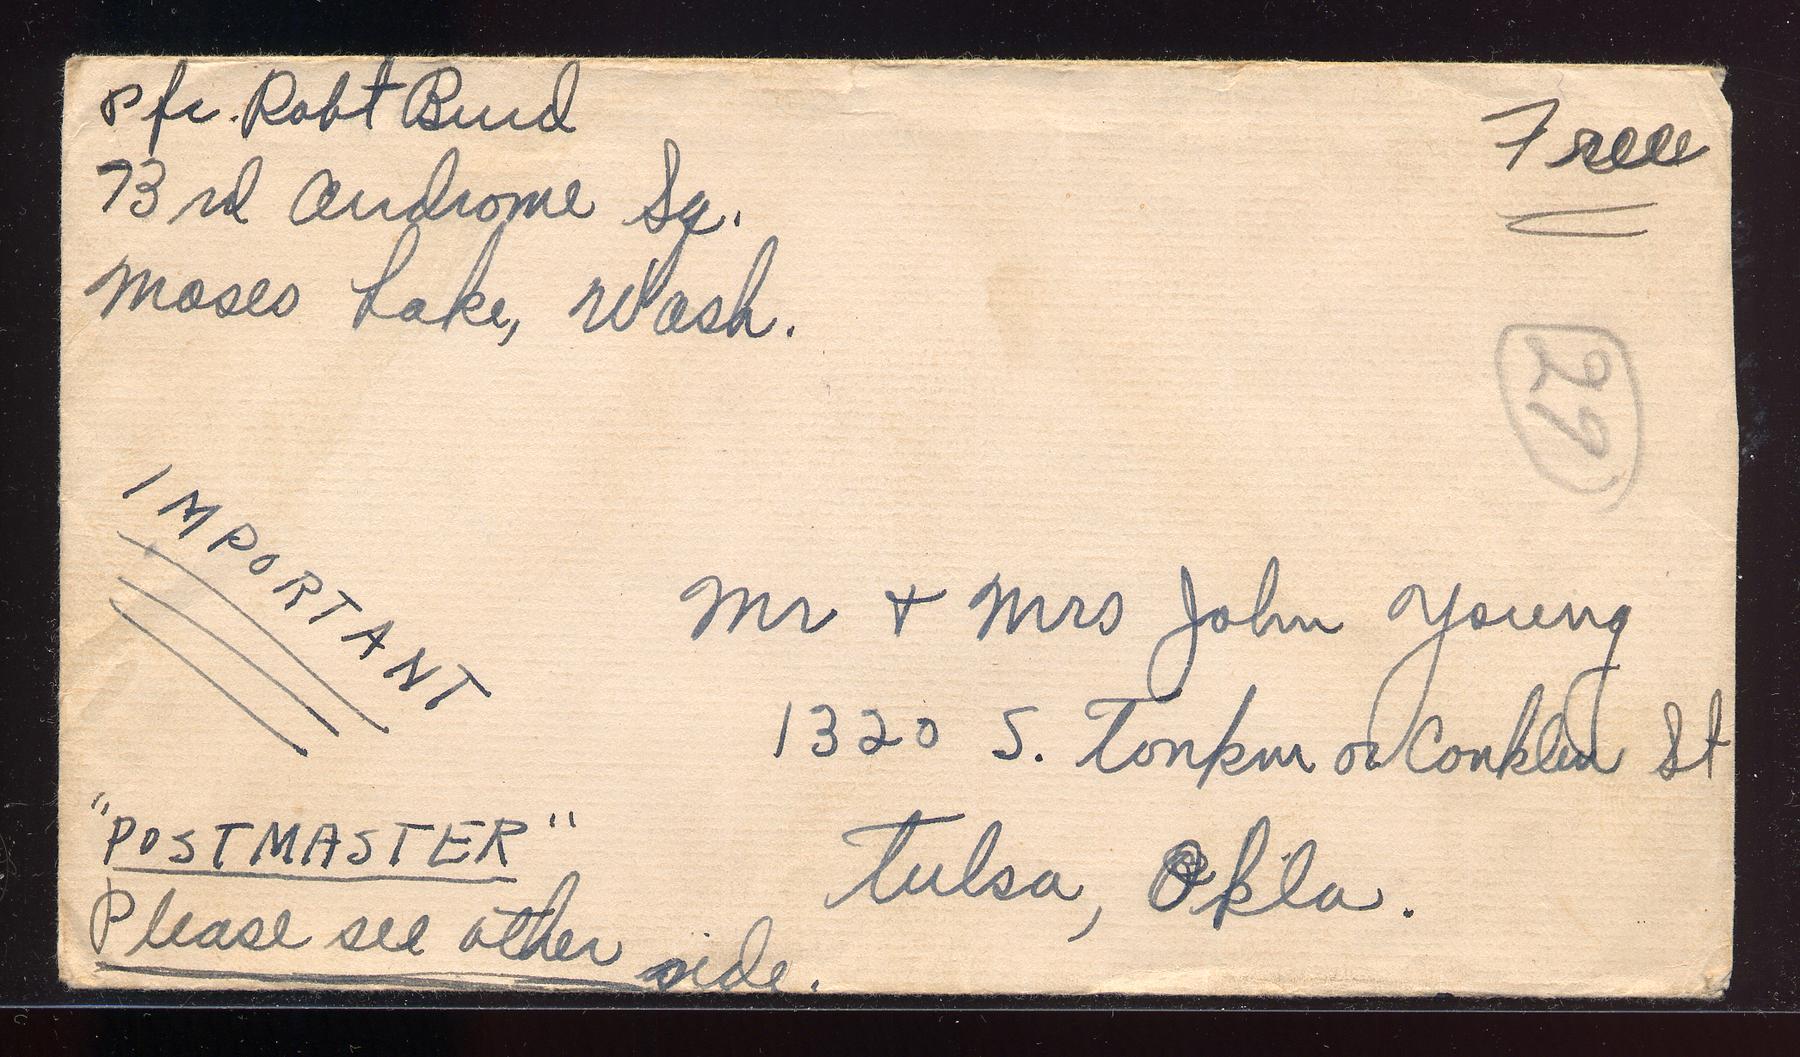 Pfc. Robt Burd
73rd Airdrome Sq.
Moses Lake, Wash.
Free
29
IMPORTANT
Mr + Mrs John Young
1320 S. Tonkin or Conklin St
Tulsa, Okla.
"POSTMASTER"
Please see other side.